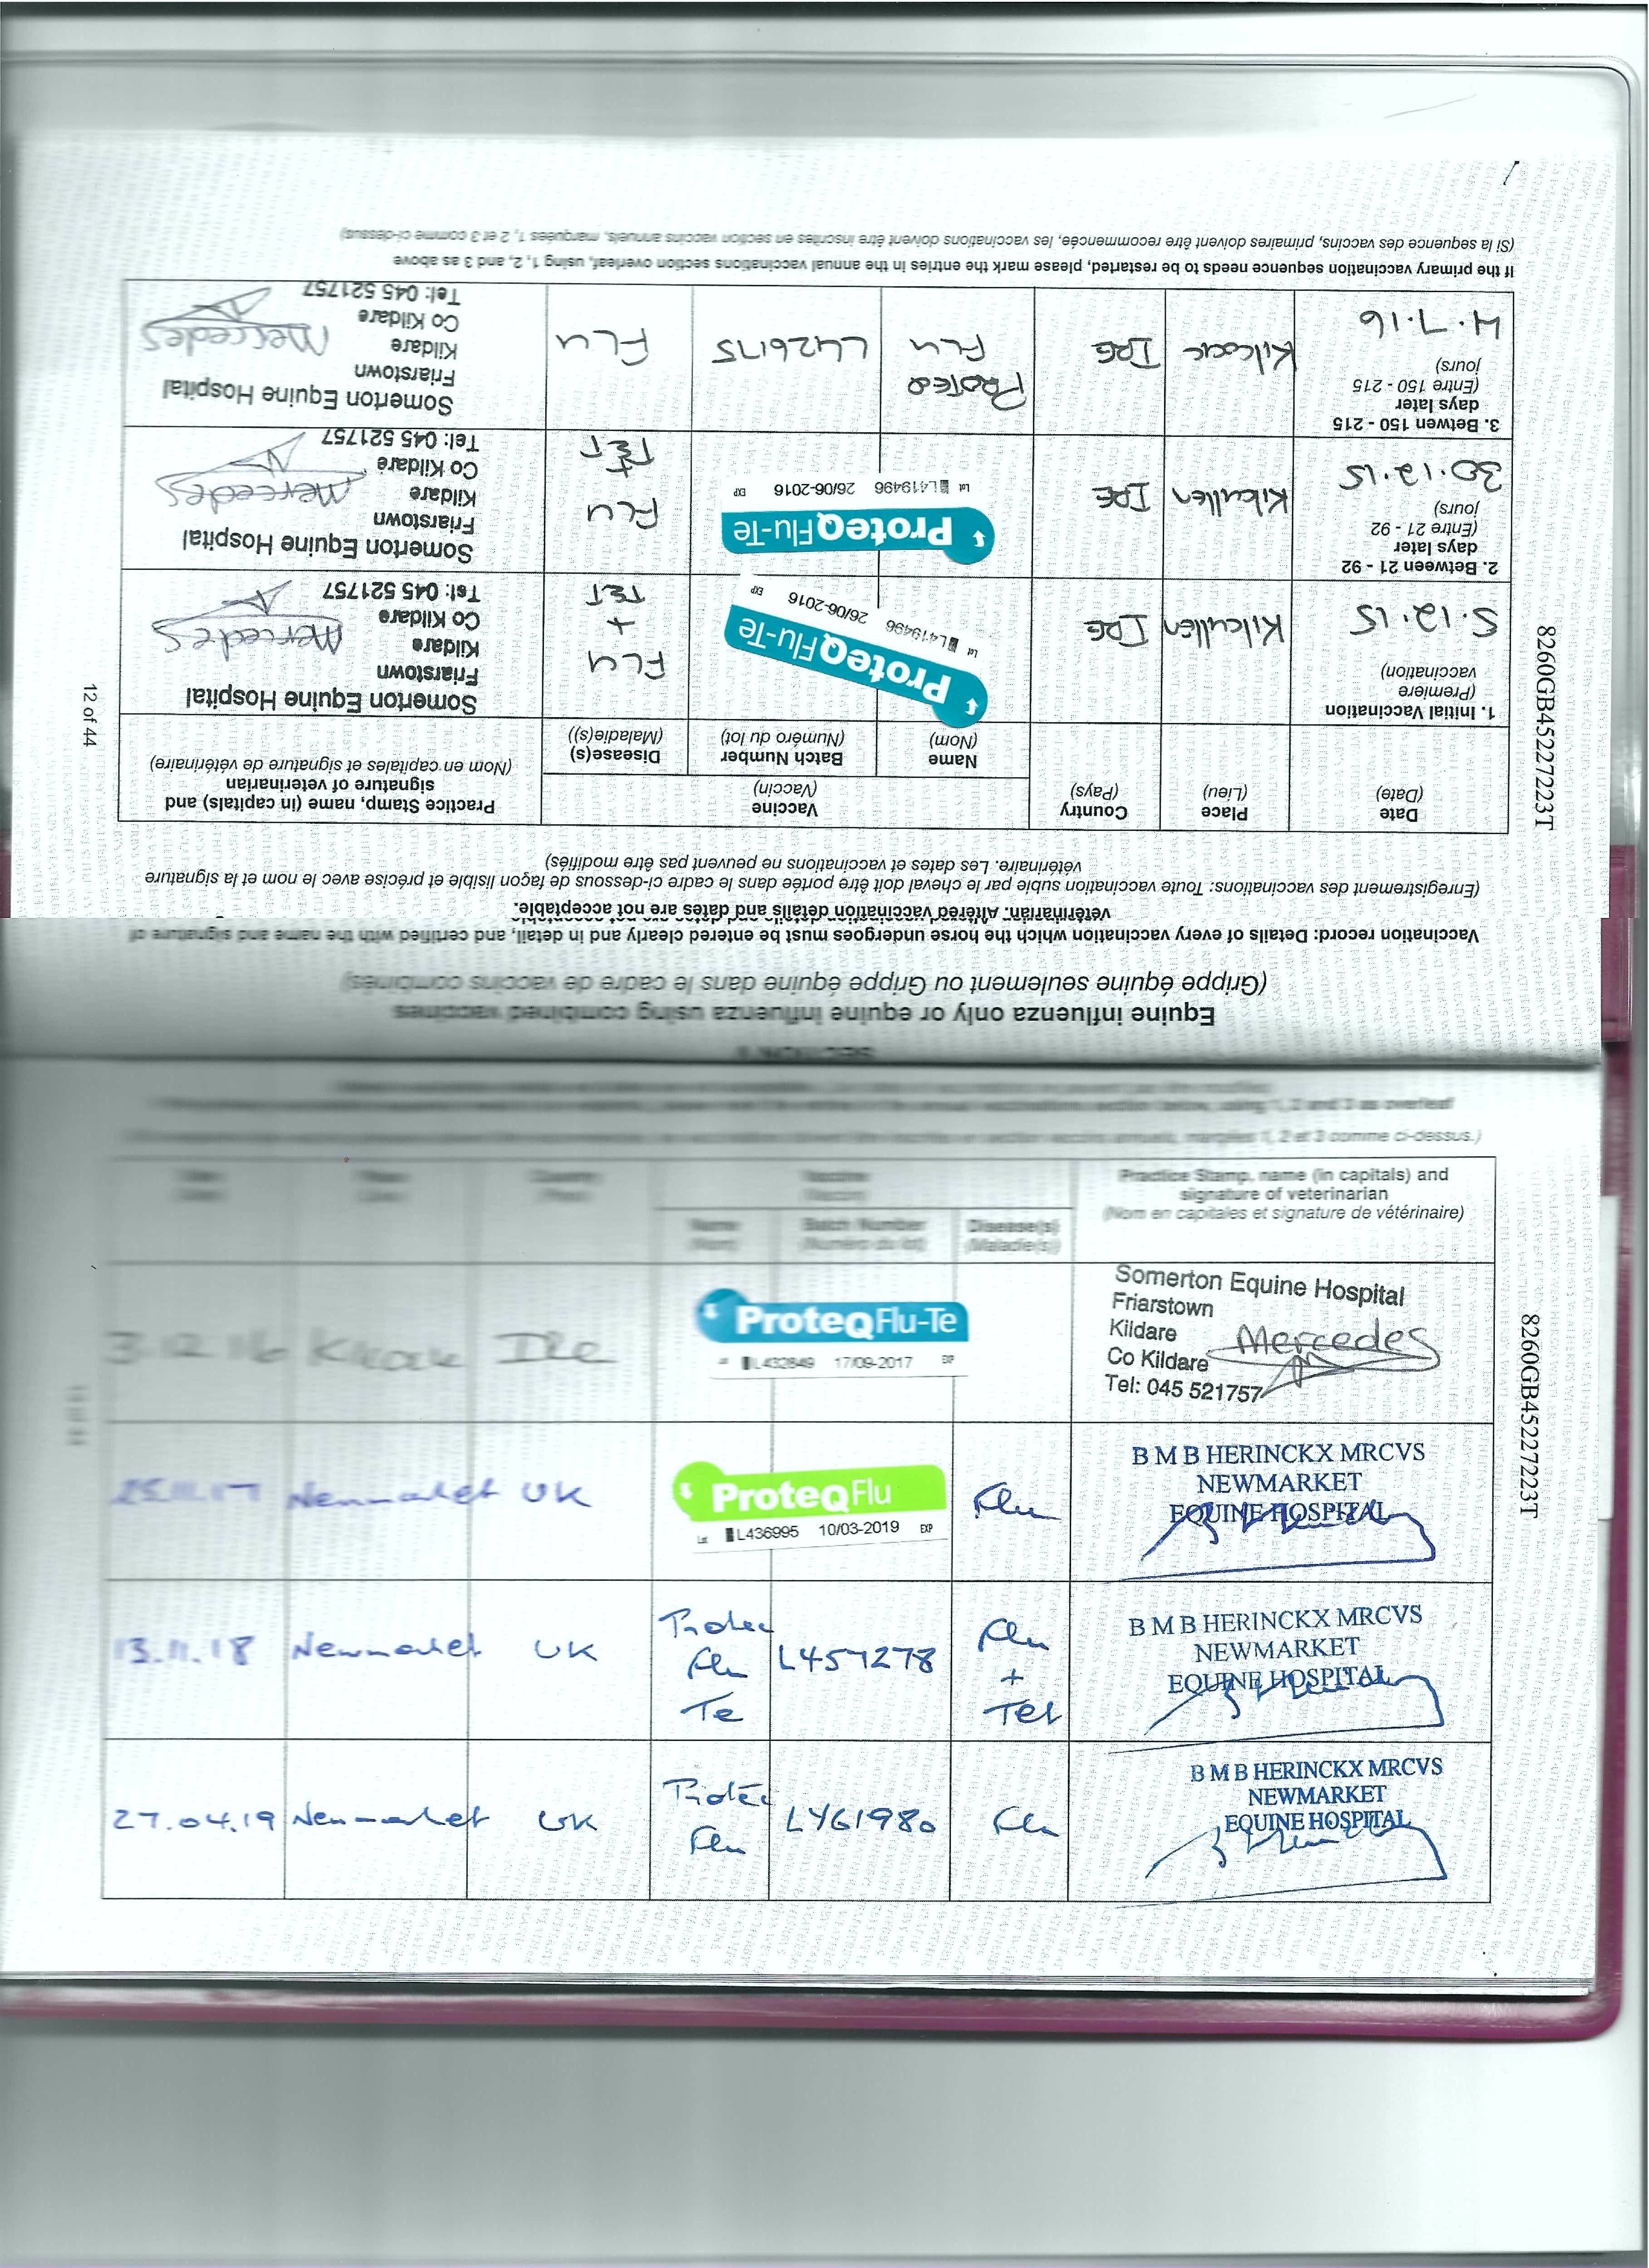 SECTION 1
Equine influenza only or equine influenza using combined vaccines
(Grippe équine seulement ou Grippe équine dans le cadre de vaccins combinés)
Vaccination record: Details of every vaccination which the horse undergoes must be entered clearly and in detail, and certified with the name and signature of
veterinarian. Altered vaccination details and dates are not acceptable.
(Enregistrement des vaccinations: Toute vaccination subie par le cheval doit être portée dans le cadre ci-dessous de façon lisible et précise avec le nom et la signature
vétérinaire. Les dates et vaccinations ne peuvent pas être modifiés)
Date
(Date)
Place
(Lieu)
Country
(Pays)
Vaccine
(Vaccin)
Name
(Nom)
Batch Number
(Numéro du lot)
Disease(s)
(Maladie(s))
Practice Stamp, name (in capitals) and
signature of veterinarian
(Nom en capitales et signature de vétérinaire)
1. Initial Vaccination
(Premiere
vaccination)
5.12.15
Kilcullen
IRE
ProteqFlu-Te
Lot L419496 26/06-2016 EXP
FLU
+
TET
Somerton Equine Hospital
Friarstown
Kildare
Co Kildare
Tel: 045 521757
Mercedes
2. Between 21 - 92
days later
(Entre 21 - 92
jours)
30.12.15
Kilcullen
IRE
ProteqFlu-Te
Lot L419496 26/06-2016 EXP
FLU
+
TET
Somerton Equine Hospital
Friarstown
Kildare
Co Kildare
Tel: 045 521757
Mercedes
3. Betwen 150 - 215
days later
(Entre 150 - 215
jours)
4.7.16
Kilcock
IRE
PROTEQ
FLU
L426175
FLU
Somerton Equine Hospital
Friarstown
Kildare
Co Kildare
Tel: 045 521757
Mercedes
If the primary vaccination sequence needs to be restarted, please mark the entries in the annual vaccinations section overleaf, using 1, 2, and 3 as above
(Si la sequence des vaccins, primaires doivent être recommencée, les vaccinations doivent être inscrites en section vaccins annuels, marquées 1, 2 et 3 comme ci-dessus)
8260GB45227223T
12 of 44
1, 2 and 3 as overleaf
marquées 1, 2 et 3 comme ci-dessus.)
Name
(Nom)
Batch Number
(Numéro du lot)
Disease(s)
(Maladie(s))
Practice Stamp, name (in capitals) and
signature of veterinarian
(Nom en capitales et signature de vétérinaire)
3.12.16
Kilcock
IRE
ProteqFlu-Te
L432849 17/09-2017 EXP
Somerton Equine Hospital
Friarstown
Kildare
Co Kildare
Tel: 045 521757
Mercedes
25.11.17
Newmarket
UK
ProteqFlu
Lot L436995 10/03-2019 EXP
Flu
B M B HERINCKX MRCVS
NEWMARKET
EQUINE HOSPITAL
13.11.18
Newmarket
UK
Protec
Flu
Te
L457278
Flu
+
Tet
B M B HERINCKX MRCVS
NEWMARKET
EQUINE HOSPITAL
27.04.19
Newmarket
UK
Protec
Flu
L461980
Flu
B M B HERINCKX MRCVS
NEWMARKET
EQUINE HOSPITAL
8260GB45227223T